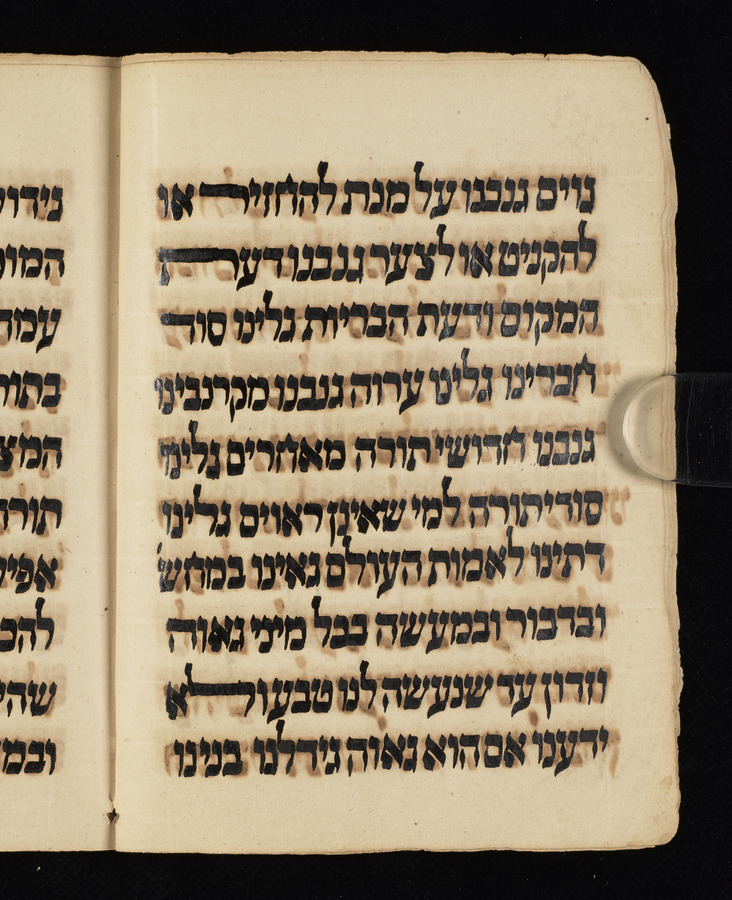 גוים גנבנו על מנת להחזיר או
להקניט או לצער גנבנו דעת
המקום ודעת הבריות גלינו סוד
חברינו גלינו ערוה גנבנו מקרובינו
גנבנו חדושי תורה מאחרים גלינו
סודי תורה למי שאינן ראוים גלינו
דתינו לאמות העולם גאינו במחש
ובדבור ובמעשה בכל מיני גאוה
וזדון עד שנעשה לנו טבע ולא
ידענו אם הוא גאוה גידלנו בנינו
גידול
המו
עמד
בתור
המצ
תורה
אפי
להכ
שהי
ובמ